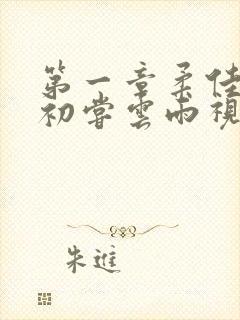 第一章柔佳
初尝云雨视
朱进